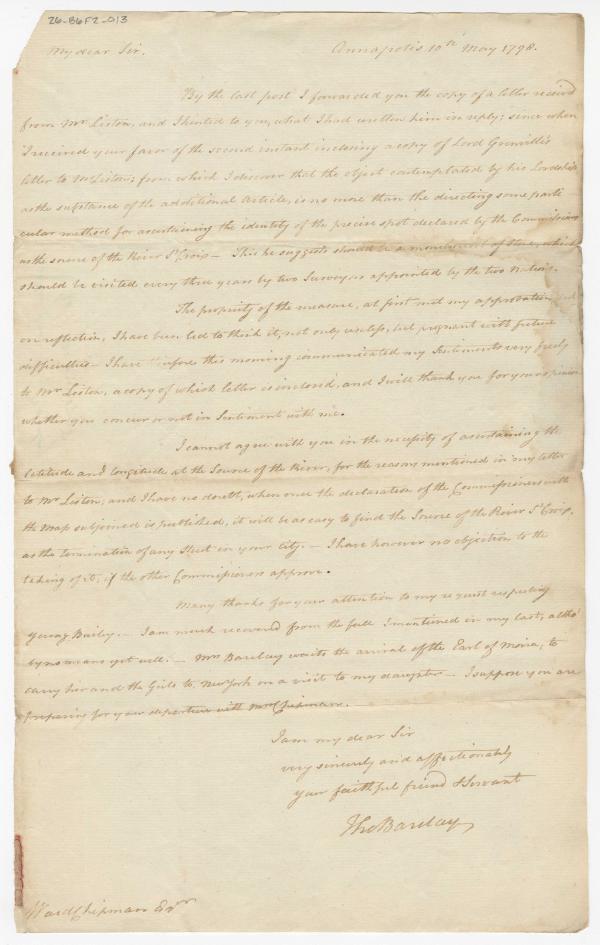 26-B6F2-013
My dear Sir. Annapolis 10th May 1798.
By the last post I forwarded you the copy of a letter recievd
from Mr Liston, and I hinted to you, what I had written him in reply; since when
I received your favor of the second instant inclosing a copy of Lord Grenville's
letter to Mr Liston; from which I discover that the object contemplated by his Lordship
as the substance of the additional Article, is no more than the directing some parti
cular method for ascertaining the identity of the precise spot declared by the Commissioners
as the source of the River St Croix — This he suggests should be a monument of Stone, which
should be visited every three years by two Surveyors appointed by the two Nations.
The propriety of the measure, at first met my approbation but
on reflection, I have been led to think it, not only useless, but pregnant with future
difficulties — I have before this morning communicated my Sentiments very freely
to Mr Liston, a copy of which letter is inclosed, and I will thank you for your opinion
whether you concur or not in Sentiment with me.
I cannot agree with you in the necessity of ascertaining the
latitude and longitude at the Source of the River, for the reasons mentioned in my letter
to Mr Liston, and I have no doubt, when once the declaration of the Commissioners with
the Map subjoined is published, it will be as easy to find the Source of the River St Croix,
as the termination of any Street in your City. — I have however no objection to the
taking of it, if the other Commissioners approve.
Many thanks for your attention to my request respecting
young Bailey. — I am much recovered from the fall I mentioned in my last, altho'
by no means yet well. — Mrs Barclay waits the arrival of the Earl of Moira, to
carry her and the Girls to New York on a visit to my daughter — I suppose you are
preparing for your departure with Mrs Chipman.
I am my dear Sir
very sincerely and affectionately
your faithful friend & Servant
Tho Barclay
Ward Chipman Esqr